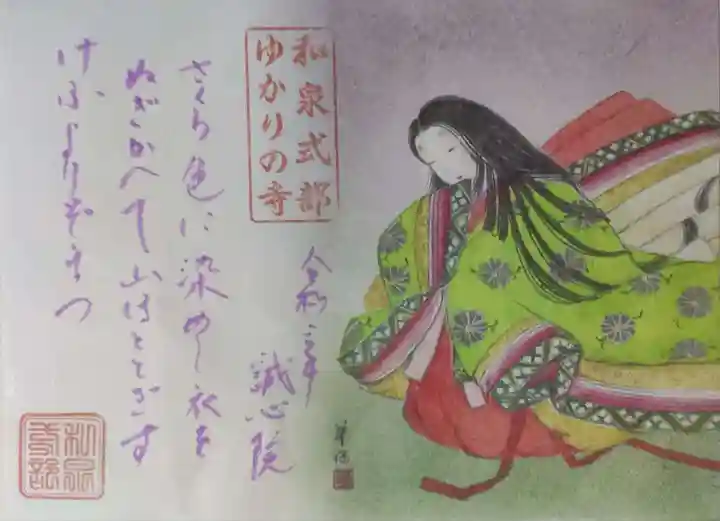 和泉式部
ゆかりの寺
令和二年
誠心院
さくら色に染めし衣を
ぬぎかへて山ほととぎす
けふよりぞまつ
和泉
式部